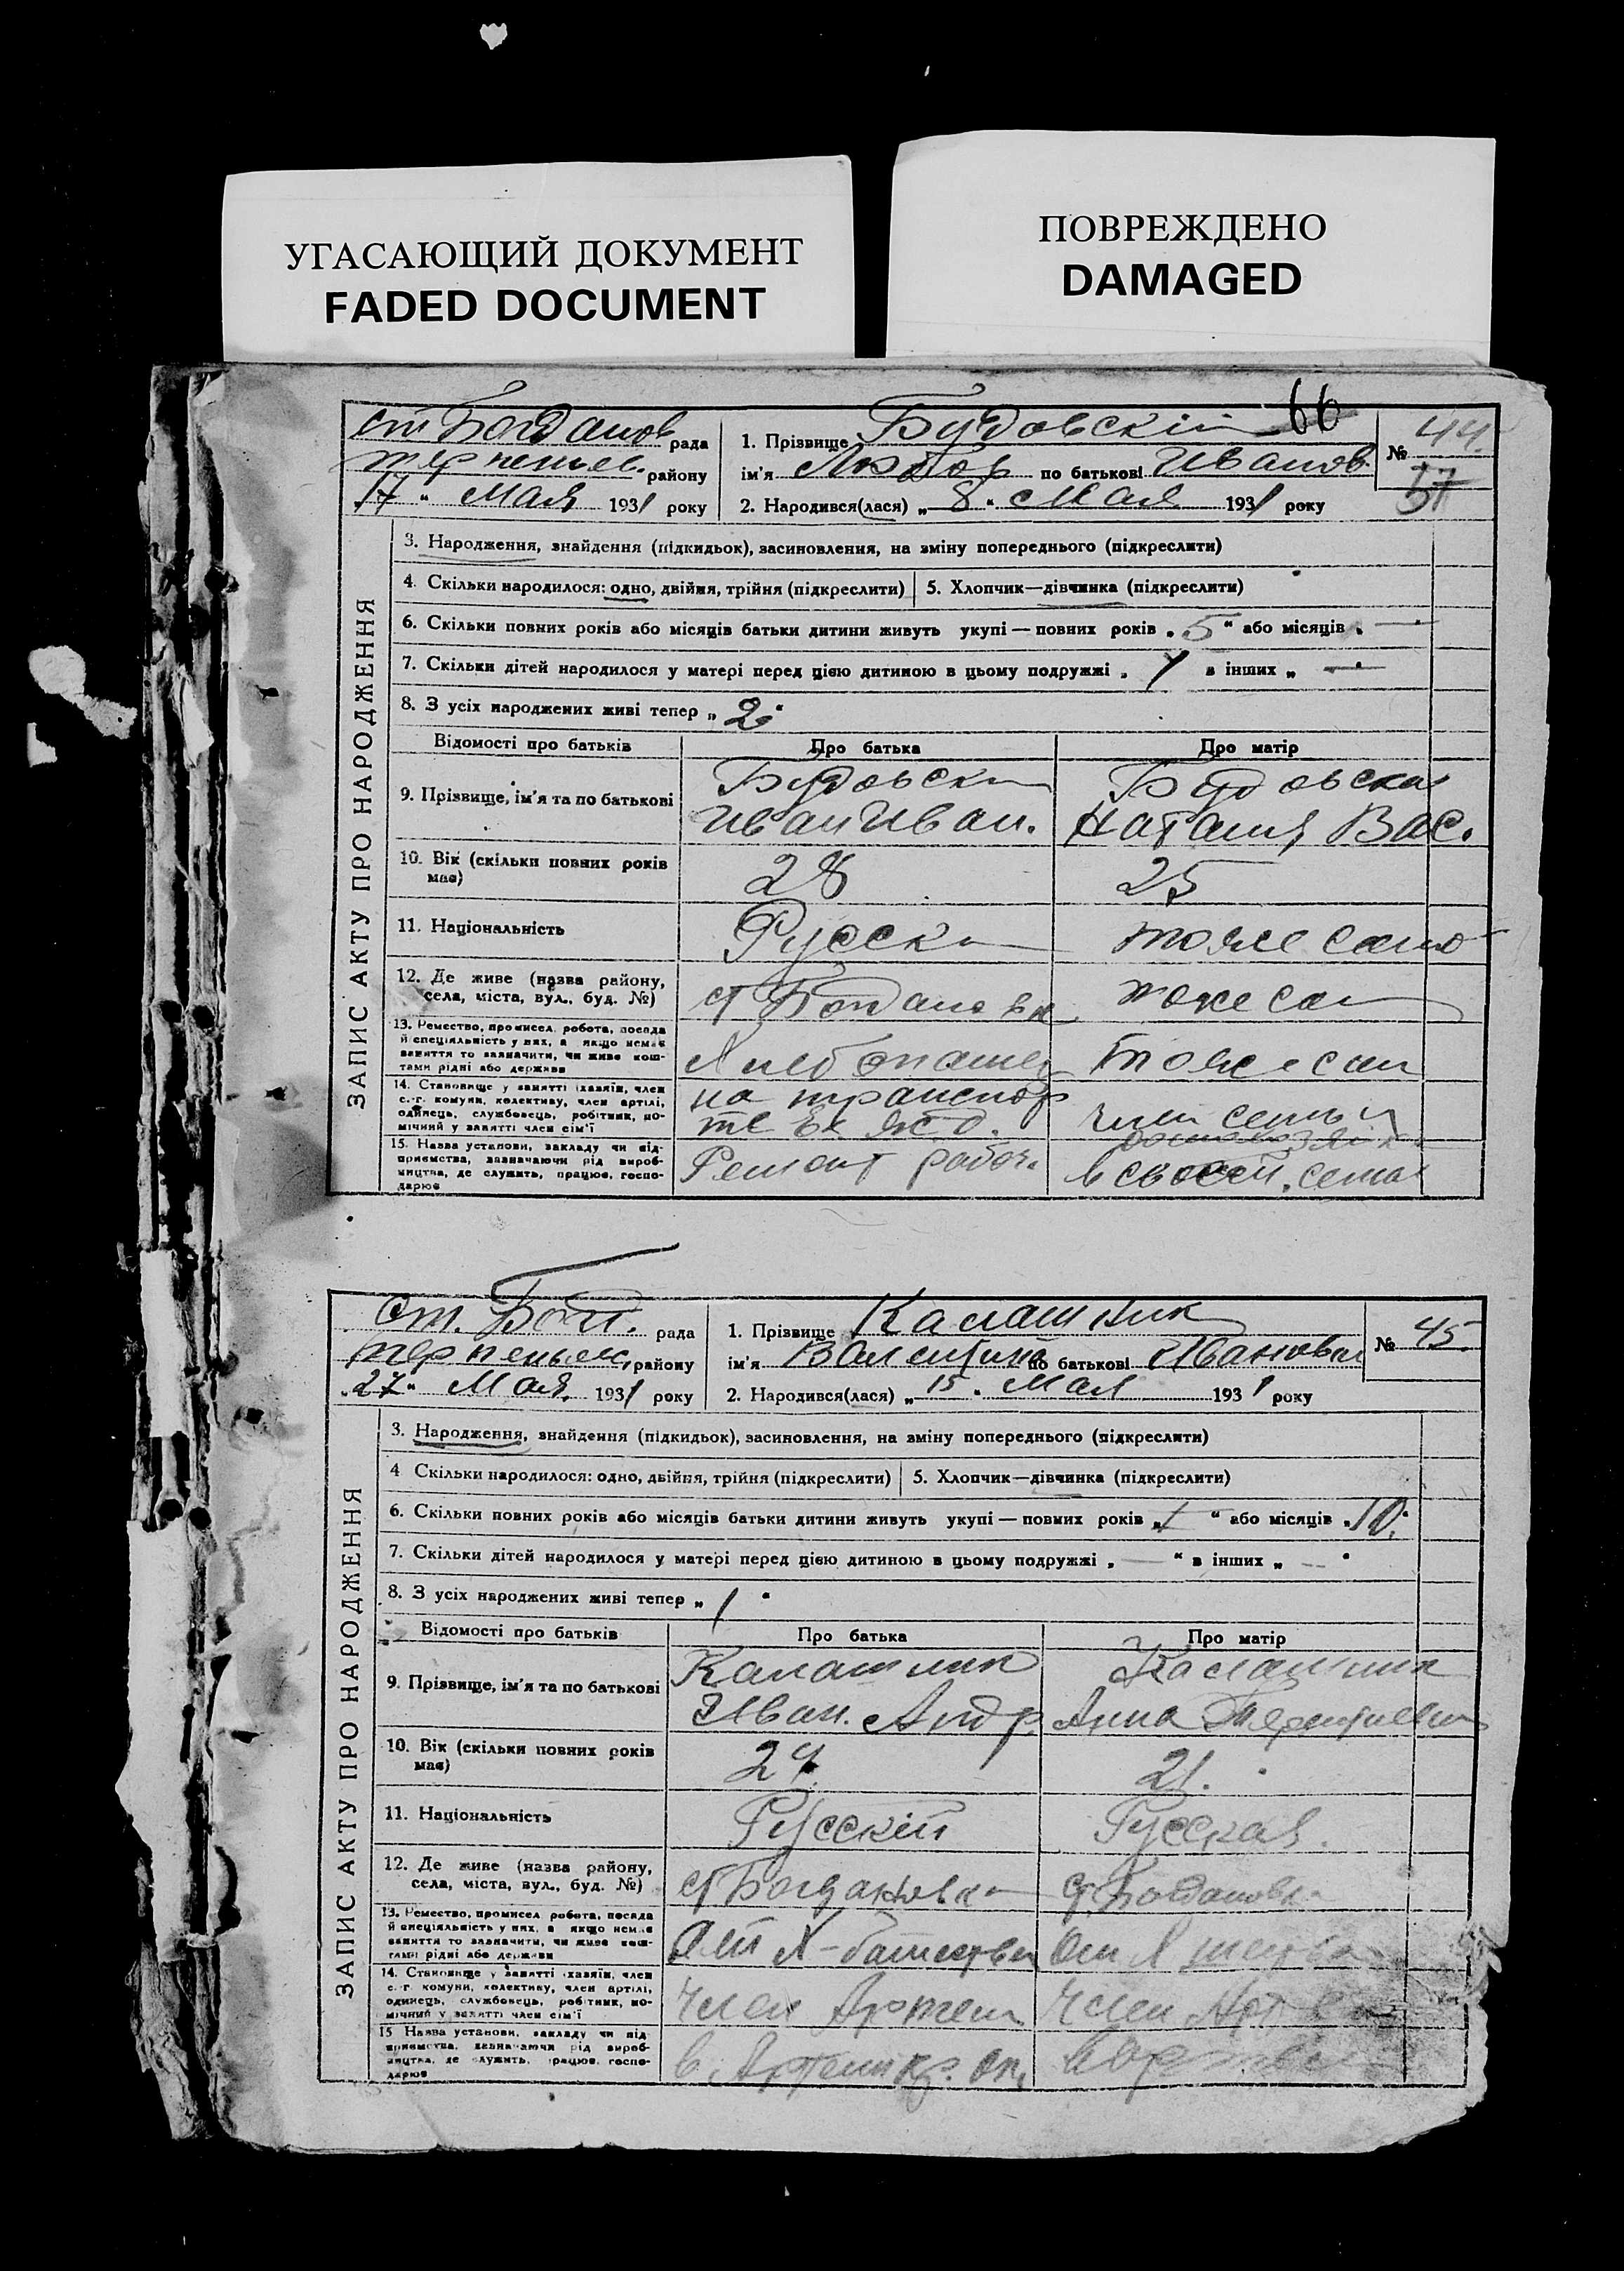 УГАСАЮЩИЙ ДОКУМЕНТ
FADED DOCUMENT
ПОВРЕЖДЕНО
DAMAGED
66
ст Богданов рада
район у
17 " Мая 1931 року
1. Прізвище Будовский
ім'я по батькові Иванов.
2. Народився(лася) „ 8 " Мая 1931 року
№ 44
57
ЗАПИС АКТУ ПРО НАРОДЖЕННЯ
3. Народження, знайдення (підкидьок), засиновлення, на зміну попереднього (підкреслити)
4. Скільки народилося: одно, двійня, трійня (підкреслити) 5. Хлопчик—дівчинка (підкреслити)
6. Скільки повних років або місяців батьки дитини живуть укупі — повних років „ 5 " або місяців „ — "
7. Скільки дітей народилося у матері перед цією дитиною в цьому подружжі „ 1 в інших „ — "
8. З усіх народжених живі тепер „ 2 "
Відомості про батьків Про батька Про матір
9. Прізвище, ім'я та по батькові
Будовски Будовская
Иван Иван. Наталия Вас.
10. Вік (скільки повних років має) 28 25
11. Національність Русски тоже само
12. Де живе (назва району, села, міста, вул., буд. №) ст Богдановка тоже сам
13. Ремество, промисел, робота, посада й спеціяльність у них, а якщо немає заняття то зазначити, чи живе коштами рідні або держави
Хлебопашец тоже сам
14. Становище у занятті (хазяїн, член с.-г. комуни, колективу, член артілі, одинець, службовець, робітник, помічний у занятті член сім'ї
на транспорте жд. член семьи
15. Назва установи, закладу чи підприємства, зазначаючи рід виробництва, де служить, працює, господарює
Ремонт рабоч. в своей семьи
ст. Богд. рада
району
„ 27 " Мая 1931 року
1. Прізвище Калашник
ім'я Валентина по батькові Ивановна
2. Народився(лася) „ 15 " Мая 1931 року
№ 45
ЗАПИС АКТУ ПРО НАРОДЖЕННЯ
3. Народження, знайдення (підкидьок), засиновлення, на зміну попереднього (підкреслити)
4 Скільки народилося: одно, двійня, трійня (підкреслити) 5. Хлопчик—дівчинка (підкреслити)
6. Скільки повних років або місяців батьки дитини живуть укупі — повних років „ 1 " або місяців „ 10 "
7. Скільки дітей народилося у матері перед цією дитиною в цьому подружжі „ — " в інших „ — "
8. З усіх народжених живі тепер „ 1 "
Відомості про батьків Про батька Про матір
9. Прізвище, ім'я та по батькові
Калашник Калашник
Иван. Андр. Анна Терентиевна
10. Вік (скільки повних років має) 24 21.
11. Національність Русский Русская.
12. Де живе (назва району, села, міста, вул., буд. №) ст Богдановка ст Богдановка
13. Ремество, промисел робота, посада й спеціяльність у них, а якщо немає заняття то зазначити, чи живе коштами рідні або держави
14. Становище у занятті (хазяїн, член с.-г. комуни, колективу, член артілі, одинець, службовець, робітник, помічний у занятті член сім'ї
Член Артели Член
15 Назва установи, закладу чи підприємства, зазначаючи рід виробництва, де служить, працює, господарює
в Артели